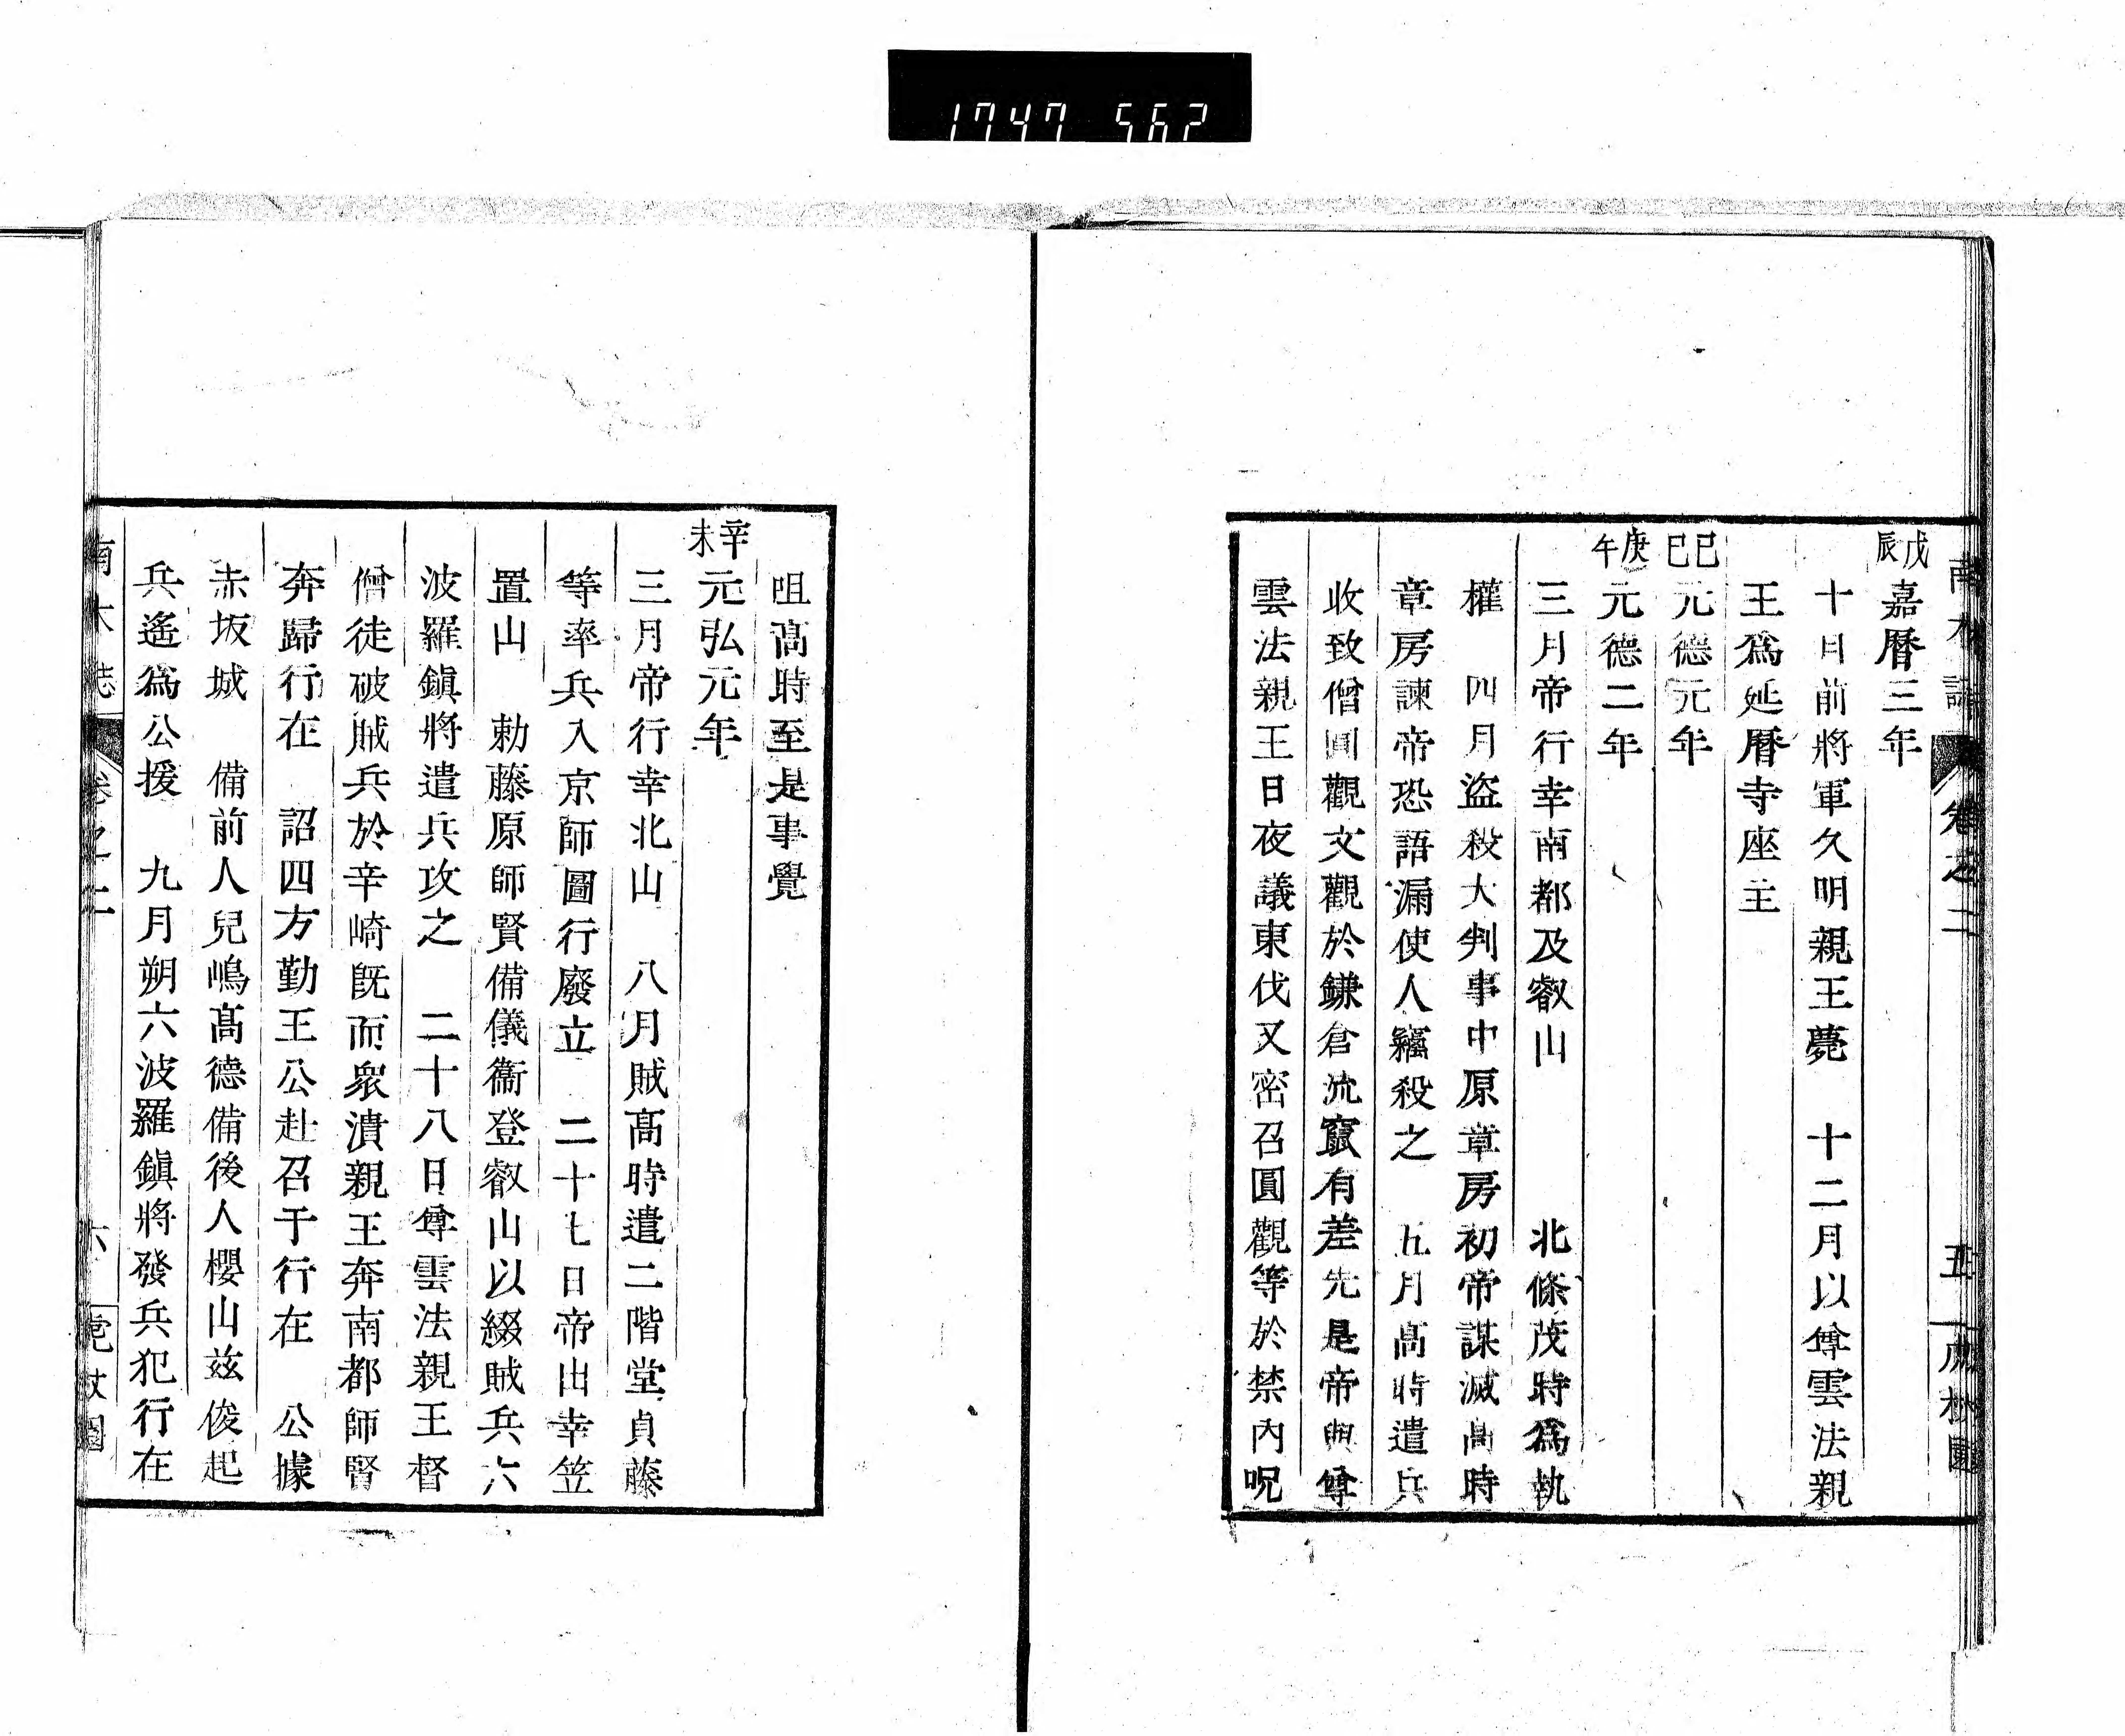 1747 562
南木誌 卷之二 五
戊辰 嘉曆三年
十月前將軍久明親王薨 十二月以尊雲法親
王爲延曆寺座主
己巳 元德元年
庚午 元德二年
三月帝行幸南都及叡山 北條茂時爲執
權 四月盜殺大判事中原章房初帝謀滅高時
章房諫帝恐語漏使人竊殺之 五月高時遣兵
收致僧圓觀文觀於鎌倉流竄有差先是帝與尊
雲法親王日夜議東伐又密召圓觀等於禁內呪
咀高時至是事覺
辛未 元弘元年
三月帝行幸北山 八月賊高時遣二階堂貞藤
等率兵入京師圖行廢立 二十七日帝出幸笠
置山 勅藤原師賢備儀衞登叡山以綴賊兵六
波羅鎮將遣兵攻之 二十八日尊雲法親王督
僧徒破賊兵於辛崎既而衆潰親王奔南都師賢
奔歸行在 詔四方勤王公赴召于行在 公據
赤坂城 備前人兒嶋高德備後人櫻山茲俊起
兵遙爲公援 九月朔六波羅鎮將發兵犯行在
南木誌 卷之二 六